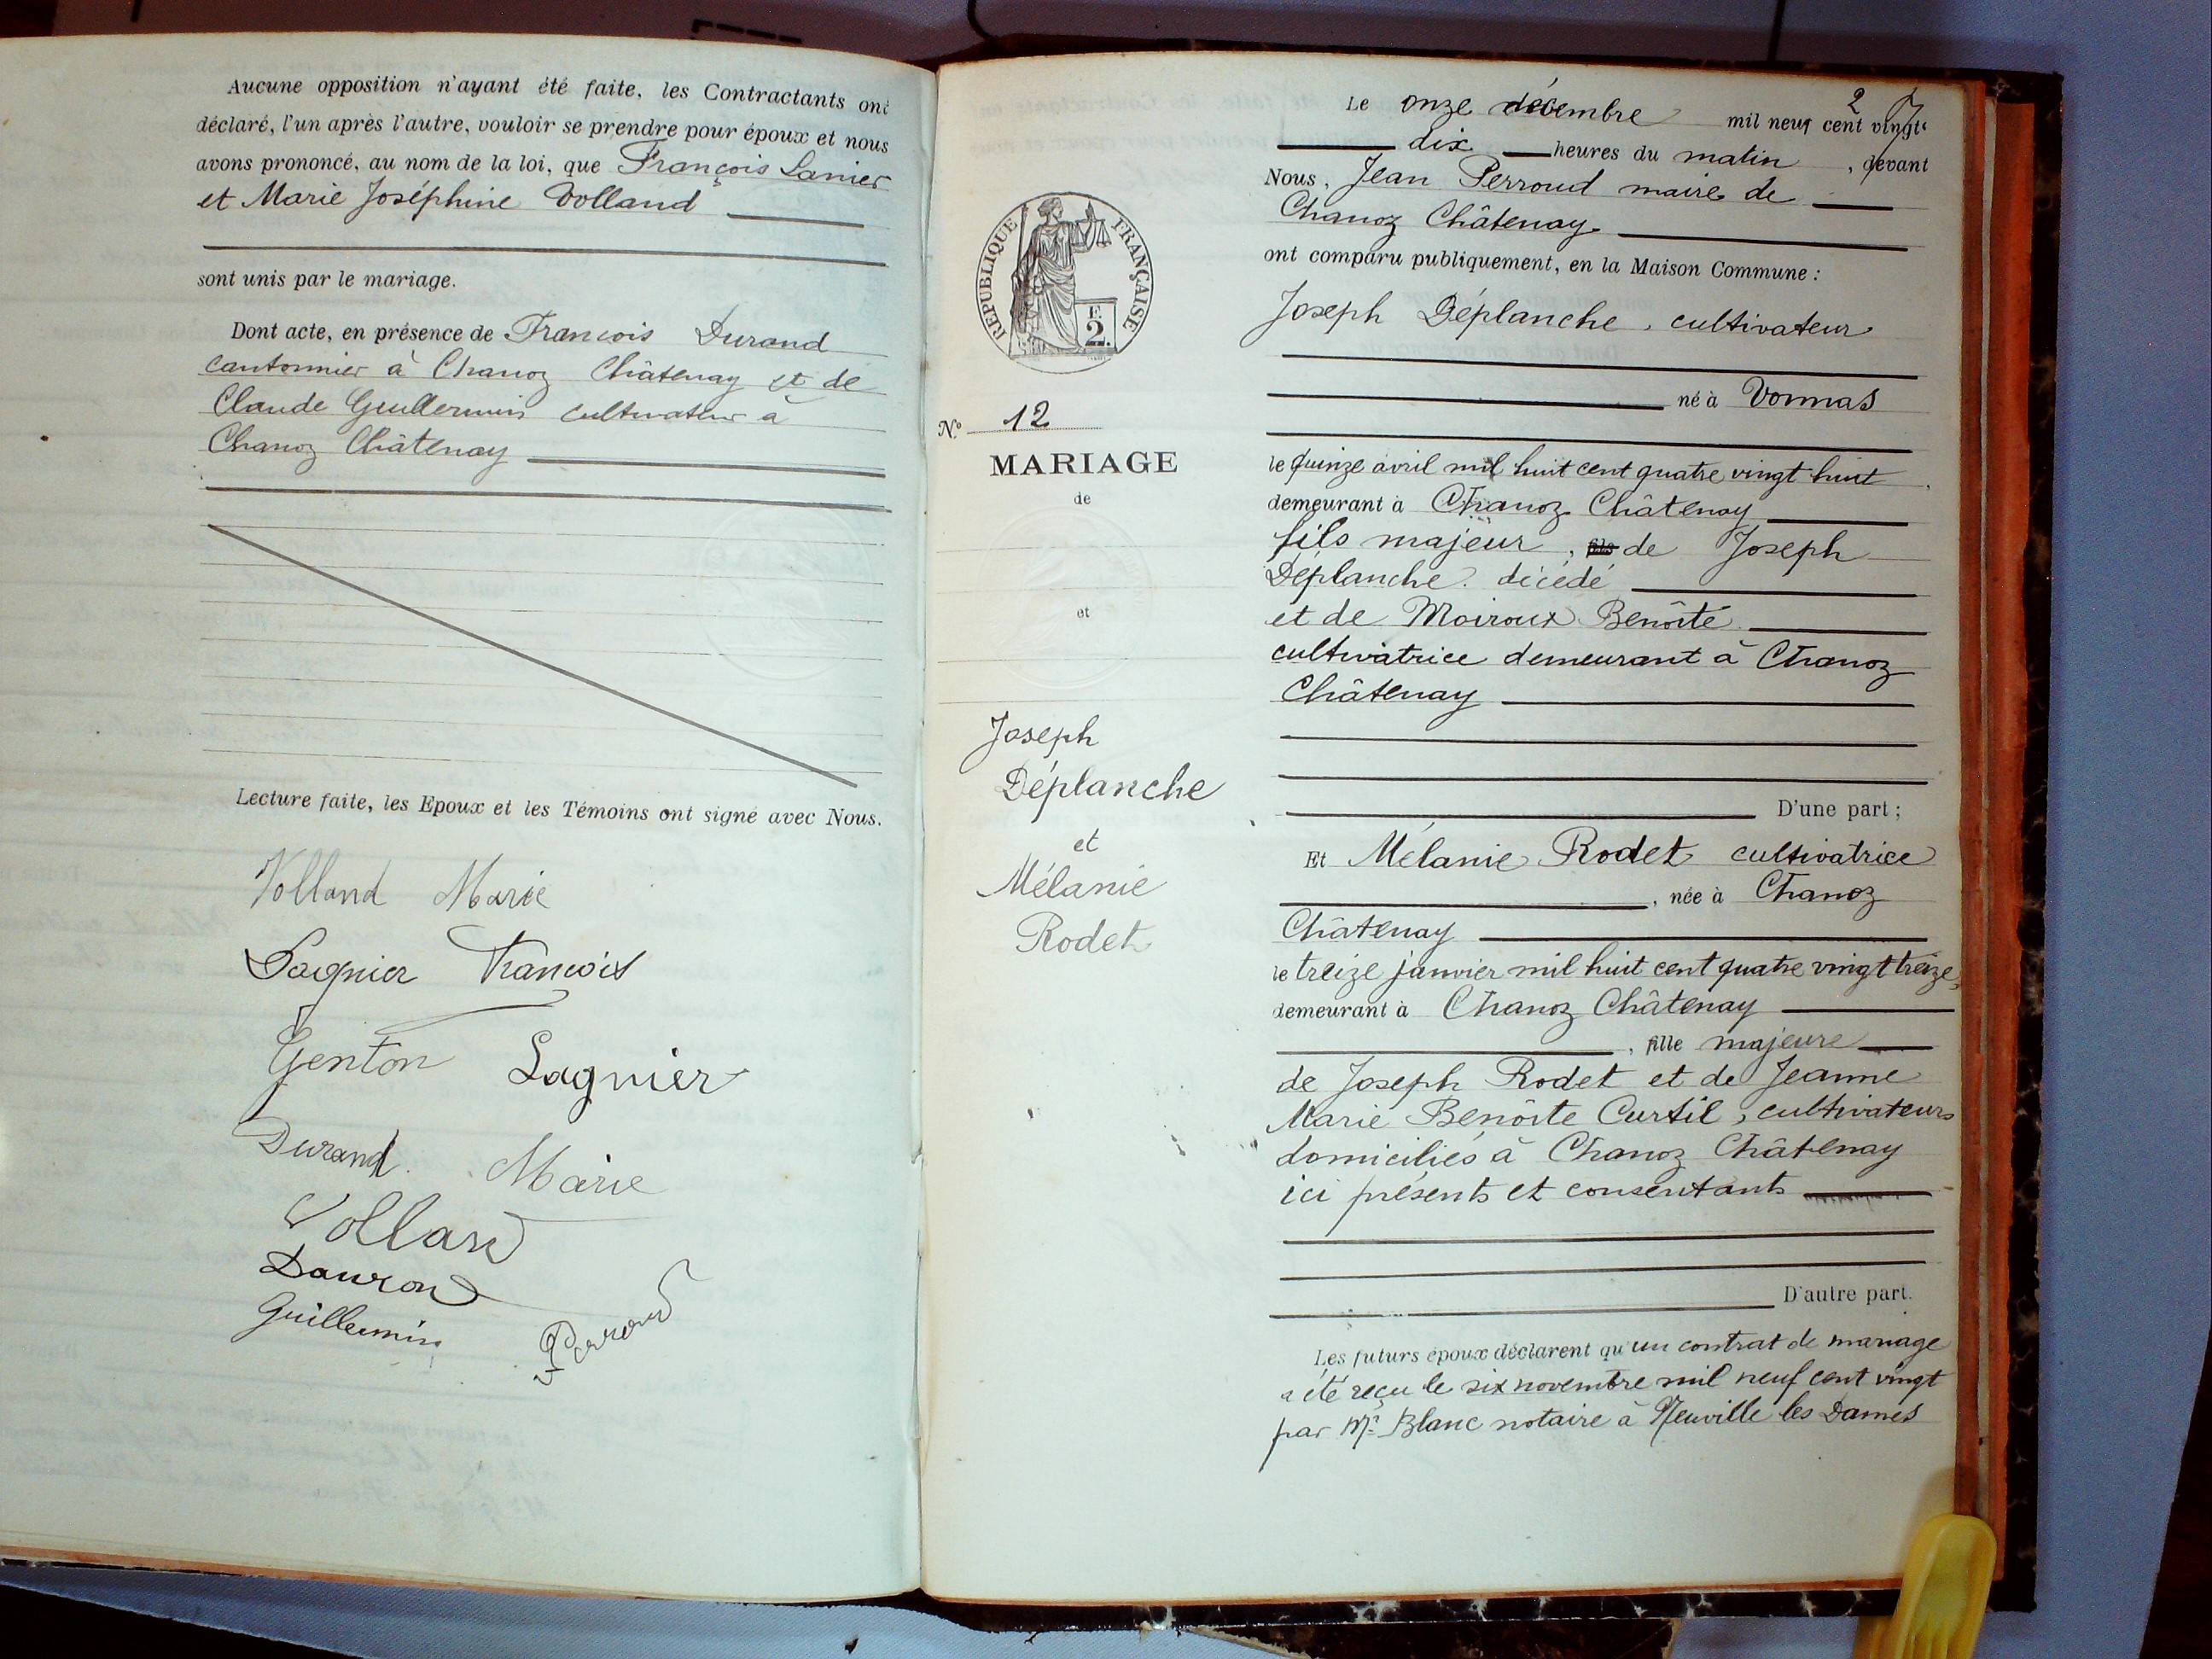 Aucune opposition n'ayant été faite, les Contractants ont
déclaré, l'un après l'autre, vouloir se prendre pour époux et nous
avons prononcé, au nom de la loi, que François Lanier
et Marie Joséphine Volland
sont unis par le mariage.
Dont acte, en présence de Francois Durand
cantonnier à Chanoz Châtenay et de
Claude Guillermin cultivateur à
Chanoz Châtenay
Lecture faite, les Epoux et les Témoins ont signé avec Nous.
Volland Marie
Sagnier Francois
Genton Lagnier
Durand Marie
Volland
Guillermin
Perroud
RÉPUBLIQUE FRANÇAISE
F.
2.
No 12
MARIAGE
de
et
Joseph
Déplanche
et
Mélanie
Rodet
2
Le onze décembre mil neuf cent vingt
dix heures du matin, devant
Nous, Jean Perroud maire de
Chanoz Châtenay
ont comparu publiquement, en la Maison Commune :
Joseph Déplanche, cultivateur
né à Vonnas
le quinze avril mil huit cent quatre vingt huit
demeurant à Chanoz Châtenay
fils majeur, fils de Joseph
Déplanche décédé
et de Moiroux Benoîte
cultivatrice demeurant à Chanoz
Châtenay
D'une part ;
Et Mélanie Rodet cultivatrice
, née à Chanoz
Châtenay
le treize janvier mil huit cent quatre vingt treize,
demeurant à Chanoz Châtenay
, fille majeure
de Joseph Rodet et de Jeanne
Marie Benoîte Curtil, cultivateurs
domiciliés à Chanoz Châtenay
ici présents et consentants
D'autre part.
Les futurs époux déclarent qu'un contrat de mariage
a été reçu le six novembre mil neuf cent vingt
par Me Blanc notaire à Neuville les Dames